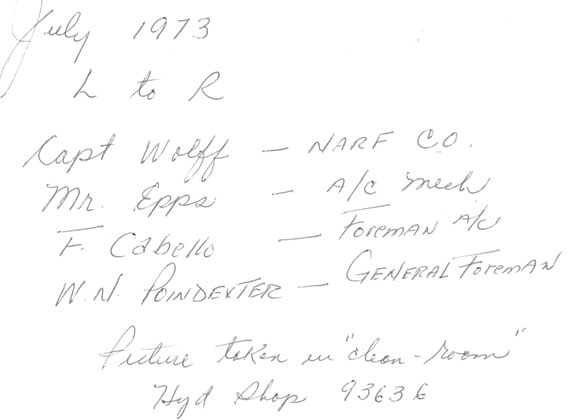 July 1973
L to R
Capt Wolff — NARF C.O.
Mr. Epps — A/C Mech
F. Cabello — Foreman A/C
W.N. Poindexter — General Foreman
Picture taken in "clean-room"
Hyd Shop 93636